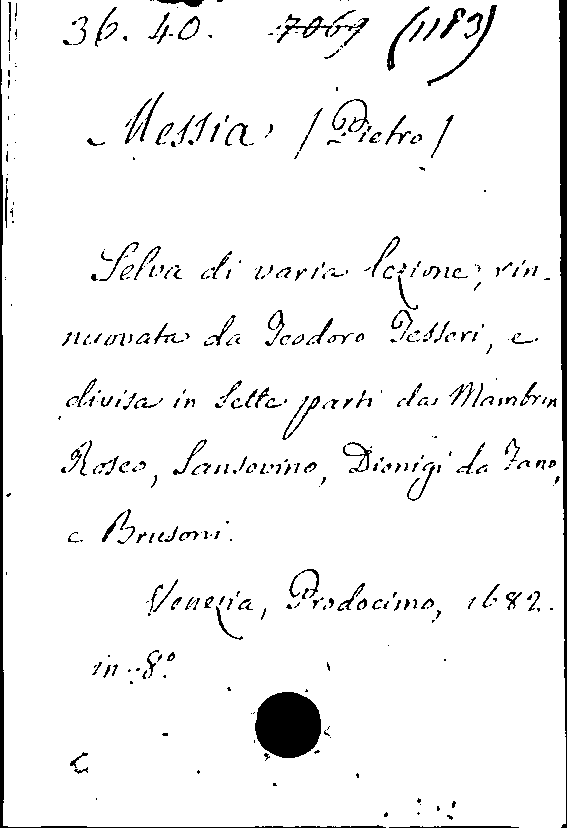 36. 40. 7069 (1183)
Messia / Pietro /
Selva di varia lezione, rin-
nuovata da Teodoro Tesseri, e
divisa in Sette parti da Mambrin
Roseo, Sansovino, Dionigi da Fano,
e Brusoni.
Venezia, Prodocimo, 1682.
in-8.º
C